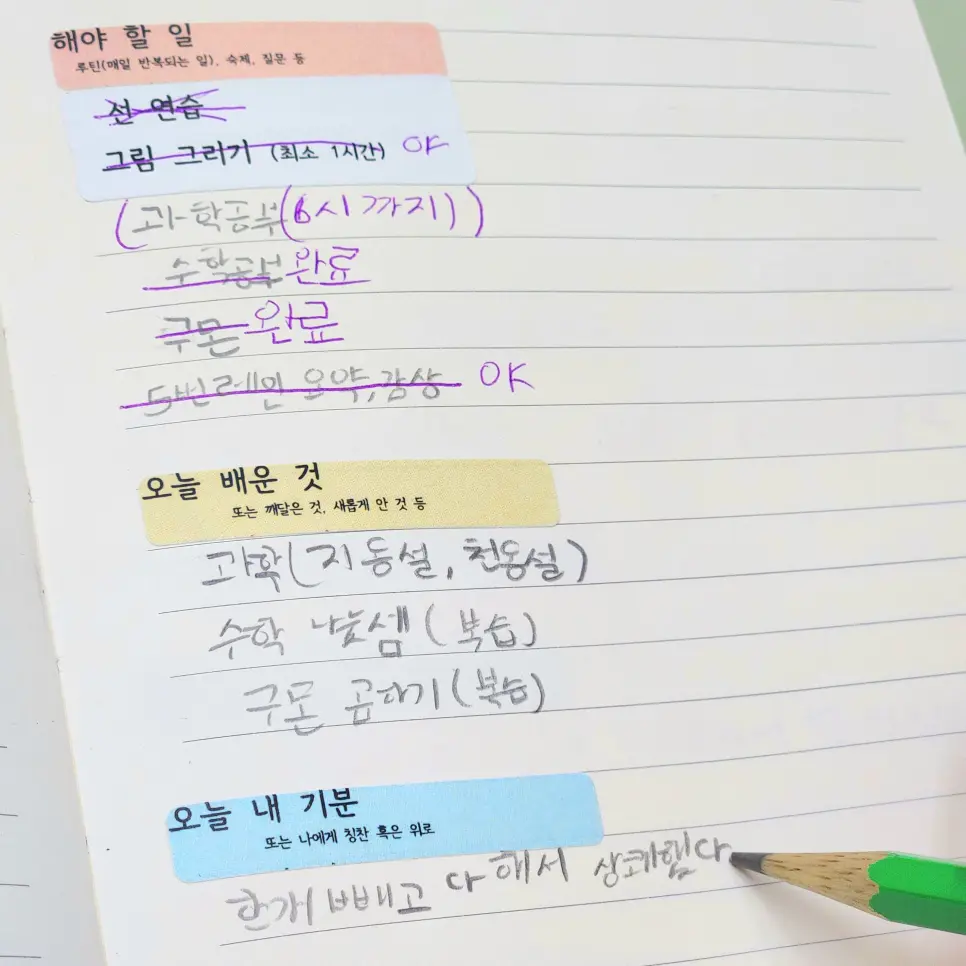 해야 할 일
루틴(매일 반복되는 일), 숙제, 질문 등
선 연습
그림 그리기 (최소 1시간) OK
(과학공부(6시까지))
수학공부 완료
구몬 완료
5번레인 요약,감상 OK
오늘 배운 것
또는 깨달은 것, 새롭게 안 것 등
과학(지동설, 천동설)
수학 나눗셈(복습)
구몬 곱하기(복습)
오늘 내 기분
또는 나에게 칭찬 혹은 위로
한개 빼고 다 해서 상쾌햇다.